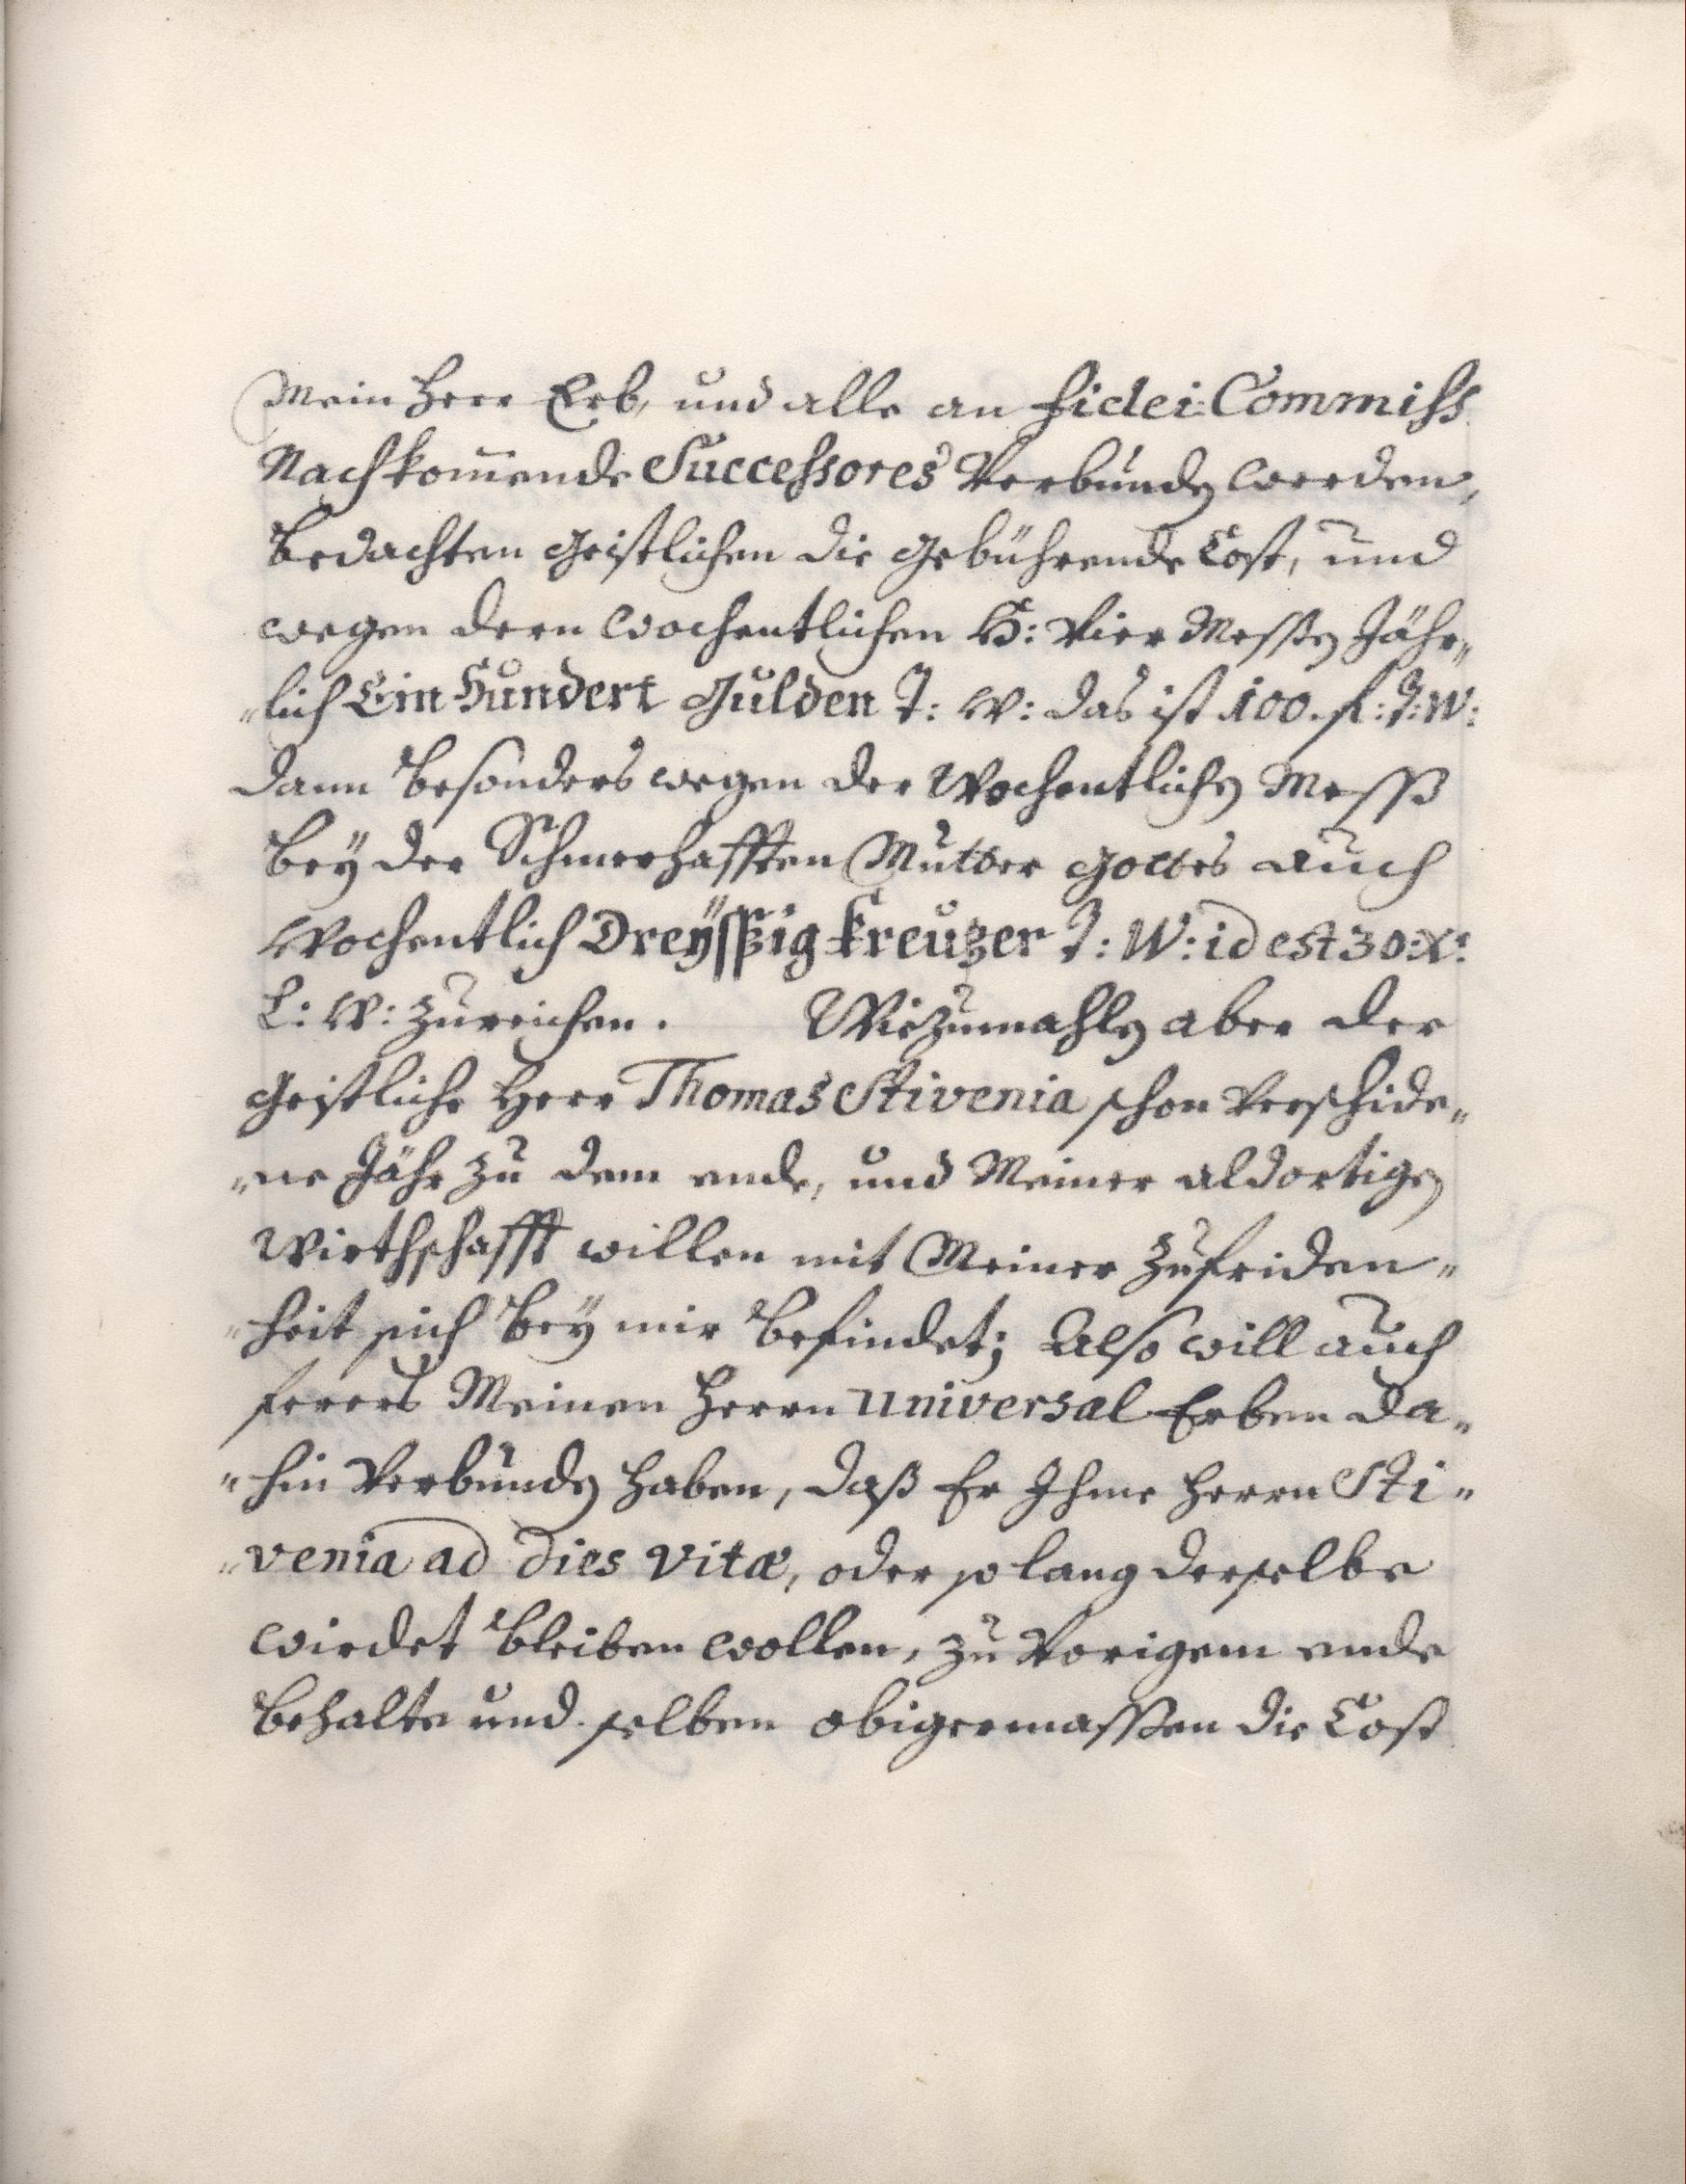 Mein Herr Erb, und alle an Fidei Commiss
Nachkom̅ende Successores Verbunden werden,
bedachten Geistlichen die gebührende Cost, und
wegen deren wochentlichen H: Vier Messen Jähr„
„lich Ein Hundert Gulden T: W: das ist 100. fl: T: W:
dann besonders wegen der Wochentlichen Mess
bey der Schmerhafften Mutter Gottes auch
Wochentlich Dreyssig Kreuzer T: W: id est 30: Xr:
L: W: zureichen. Wiezumahlen aber der
Geistliche Herr Thomas Stivenia schon Verschide„
„ne Jahr zu dem ende, und Meiner aldortigen
Wirthschafft willen mit Meiner Zufriden„
„heit sich bey mir befindet; Also will auch
ferers Meinen Herrn Universal Erben da„
„hin Verbunden haben, daß Er Ihme Herrn Sti„
„venia ad dies vitæ, oder so lang derselbe
wirdet bleiben wollen, zu Vorigem ende
behalte und selben obigermassen die Cost